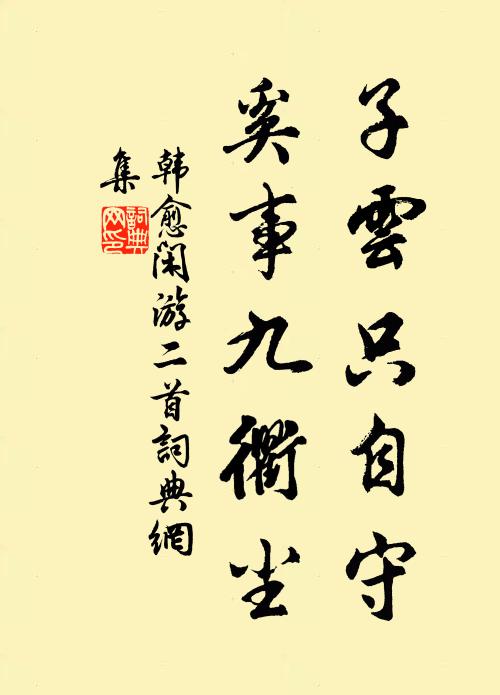 子雲只自守
奚事九衢尘
韩愈闲游二首詞典網
集
詞典
网印